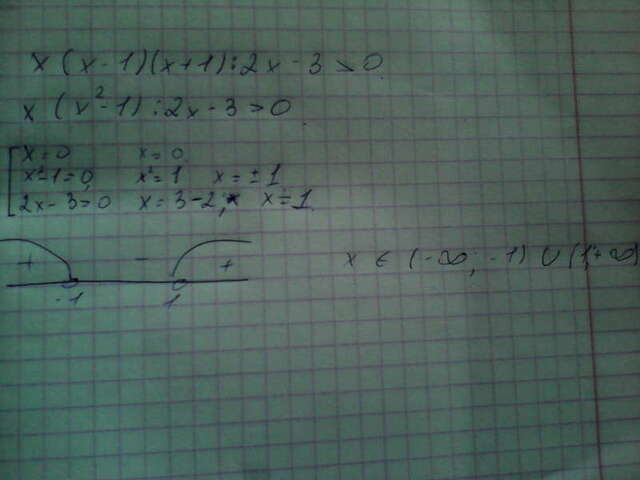 x (x - 1)(x + 1) : 2x - 3 > 0
x (x² - 1) : 2x - 3 > 0
x = 0 x = 0
x² - 1 = 0 x² = 1 x = ± 1
2x - 3 = 0 x = 3 - 2, x x = 1
+ - +
-1 1
x ∈ (-∞; -1) ∪ (1; +∞)